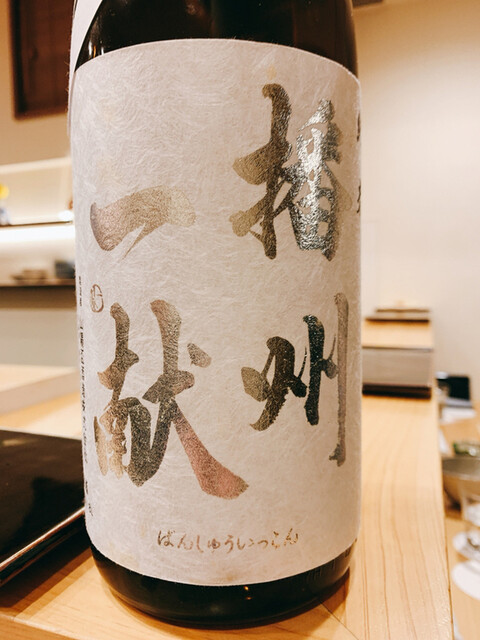 播州
一献
ばんしゅういっこん